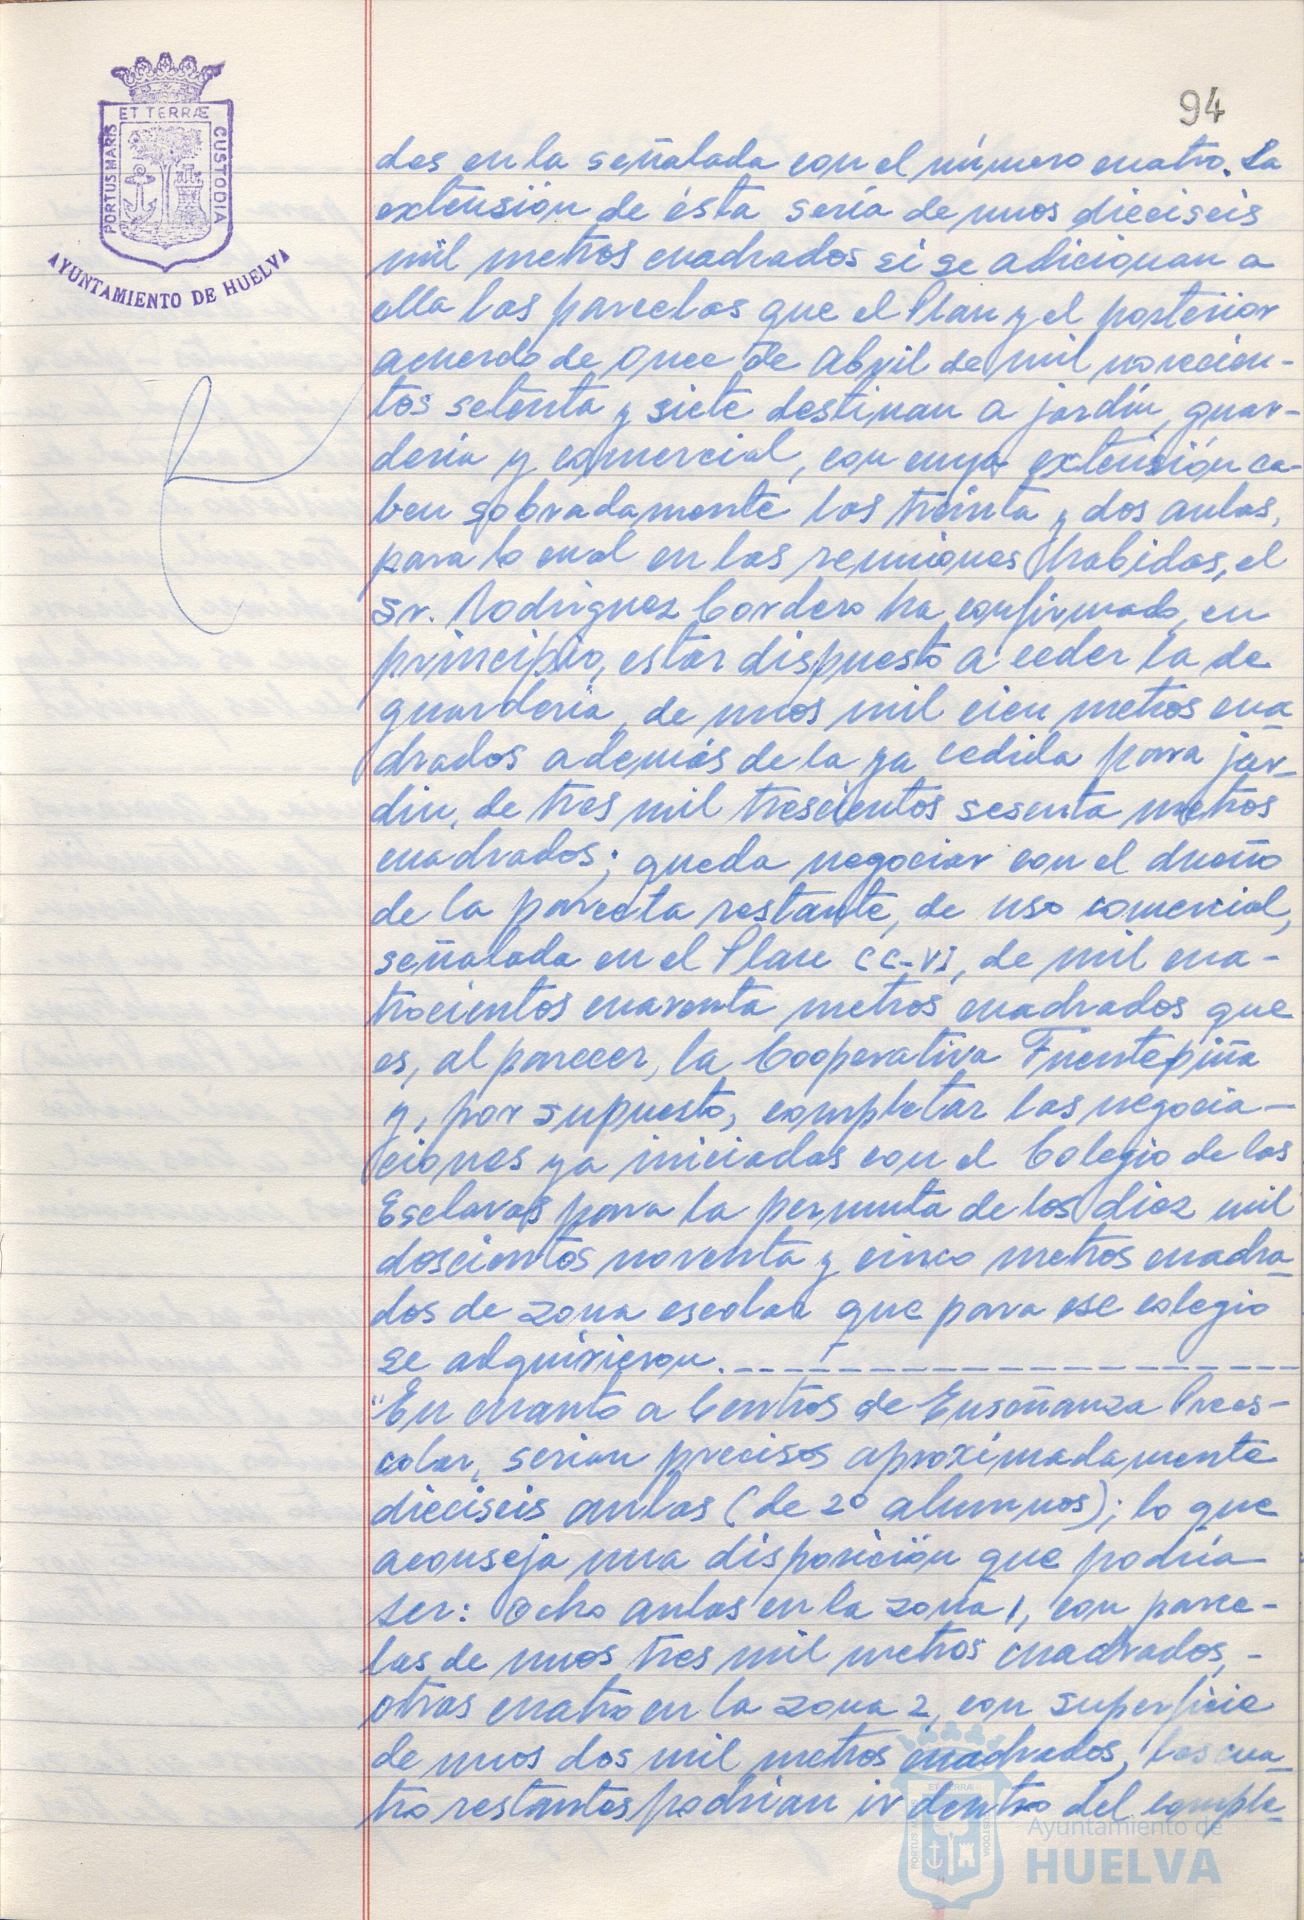 94
ET TERRÆ
PORTUS MARIS
CUSTODIA
AYUNTAMIENTO DE HUELVA
des en la señalada con el número cuatro. La
extensión de ésta sería de unos dieciseis
mil metros cuadrados si se adicionan a
ella las parcelas que el Plan y el posterior
acuerdo de once de Abril de mil novecien-
tos setenta y siete destinan a jardín, guar-
dería y comercial, con cuya extensión ca-
ben sobradamente las treinta y dos aulas,
para lo cual en las reuniones habidas, el
Sr. Rodríguez Cordero ha confirmado, en
principio, estar dispuesto a ceder la de
guardería, de unos mil cien metros cua
drados además de la ya cedida para jar-
din, de tres mil trescientos sesenta metros
cuadrados; queda negociar con el dueño
de la parcela restante, de uso comercial,
señalada en el Plan CC-VI, de mil cua-
trocientos cuarenta metros cuadrados que
es, al parecer, la Cooperativa Fuentepiña
y, por supuesto, completar las negocia-
ciones ya iniciadas con el Colegio de las
Esclavas para la permuta de los diez mil
doscientos noventa y cinco metros cuadra-
dos de zona escolar que para ese colegio
se adquirieron.
"En cuanto a Centros de Enseñanza Prees-
colar, serían precisos aproximadamente
dieciseis aulas (de 20 alumnos); lo que
aconseja una disposición que podría
ser: Ocho aulas en la zona 1, con parce-
las de unos tres mil metros cuadrados,-
otras cuatro en la zona 2, con superficie
de unos dos mil metros cuadrados, las cua-
tro restantes podrían ir dentro del comple-
ET TERRÆ
PORTUS MARIS
CUSTODIA
Ayuntamiento de
HUELVA